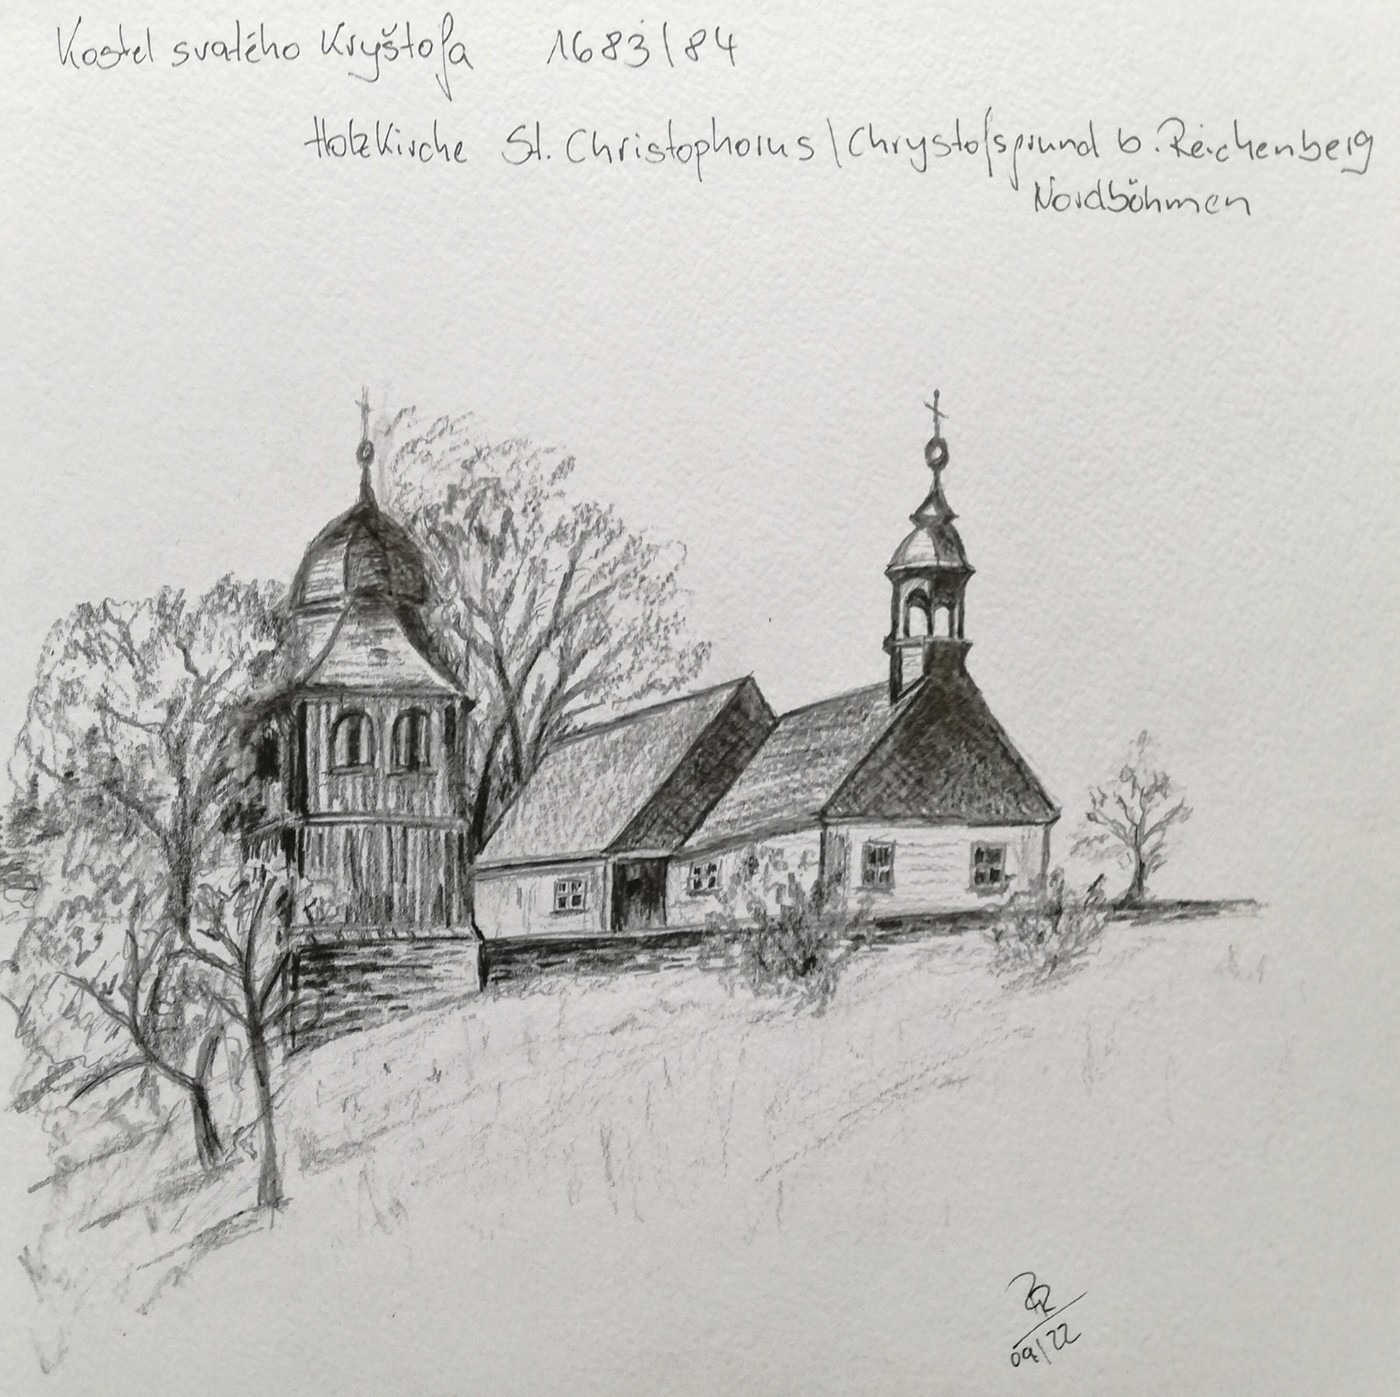 Kostel svatého Kryštofa 1683/84
Holzkirche St. Christophorus \ Chrystofsgrund b. Reichenberg
Nordböhmen
09/22